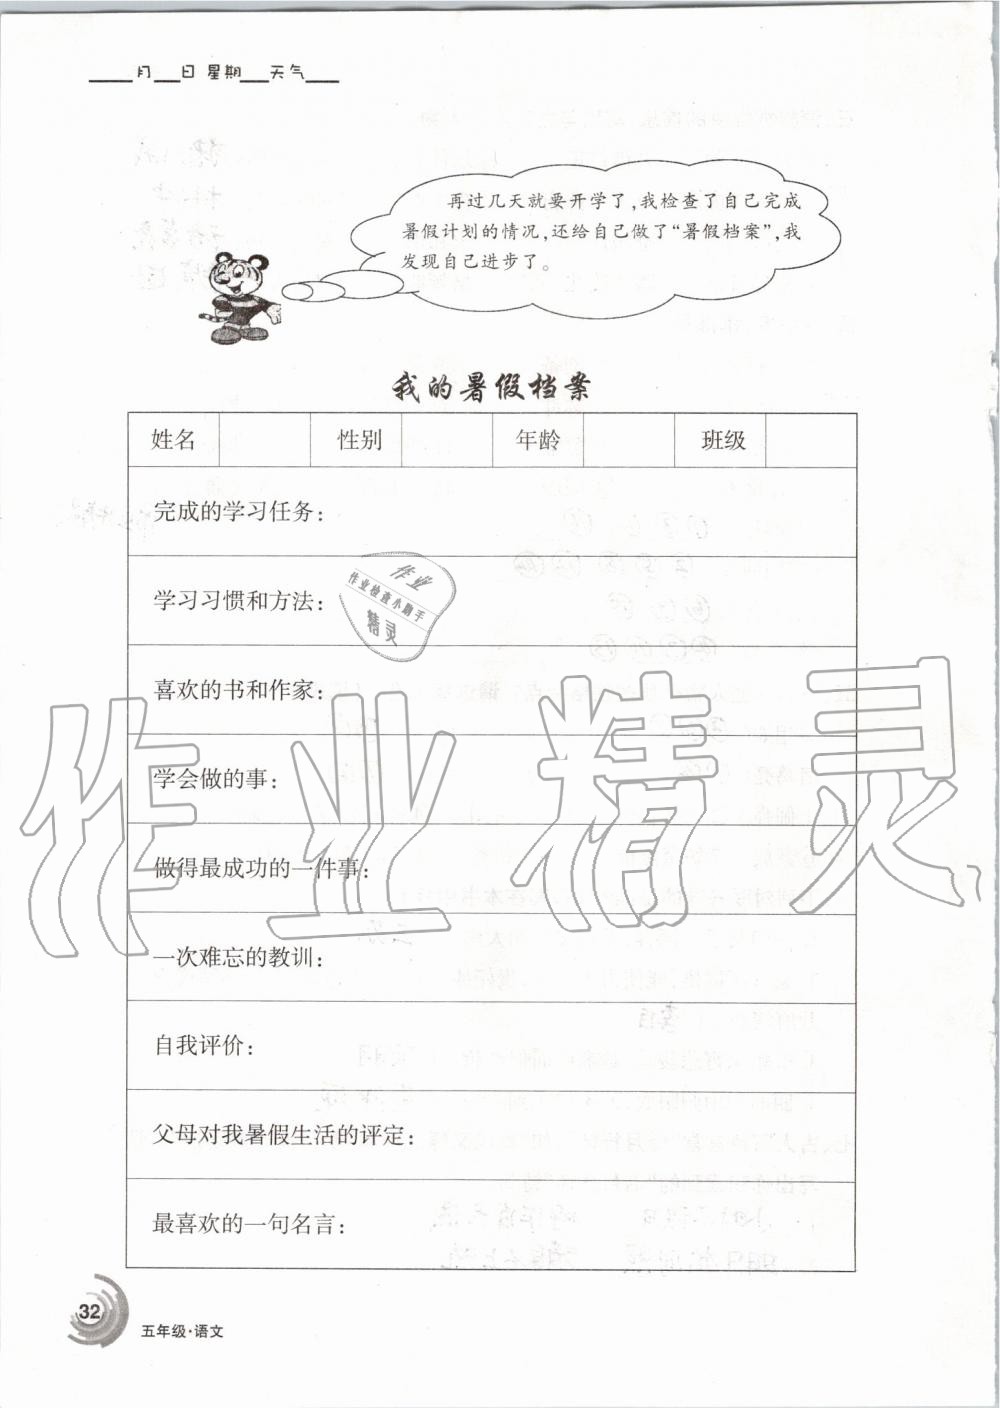 ____月___日 星期___天气____
再过几天就要开学了,我检查了自己完成
暑假计划的情况,还给自己做了“暑假档案”,我
发现自己进步了。
我的暑假档案
姓名 性别 年龄 班级
完成的学习任务:
学习习惯和方法:
作业
作业检查小助手
精灵
喜欢的书和作家:
学会做的事:
作业精灵
做得最成功的一件事:
一次难忘的教训:
自我评价:
父母对我暑假生活的评定:
最喜欢的一句名言:
32
五年级·语文